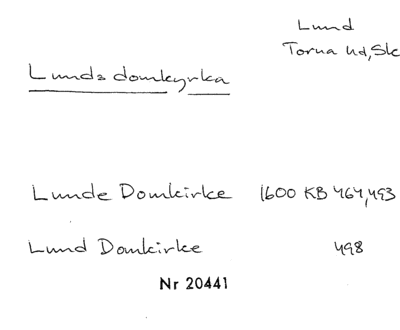 Lund
Torna hd, Sk
Lunds domkyrka
Lunde Domkirke 1600 KB 467, 493
Lund Domkirke 498
Nr 20441